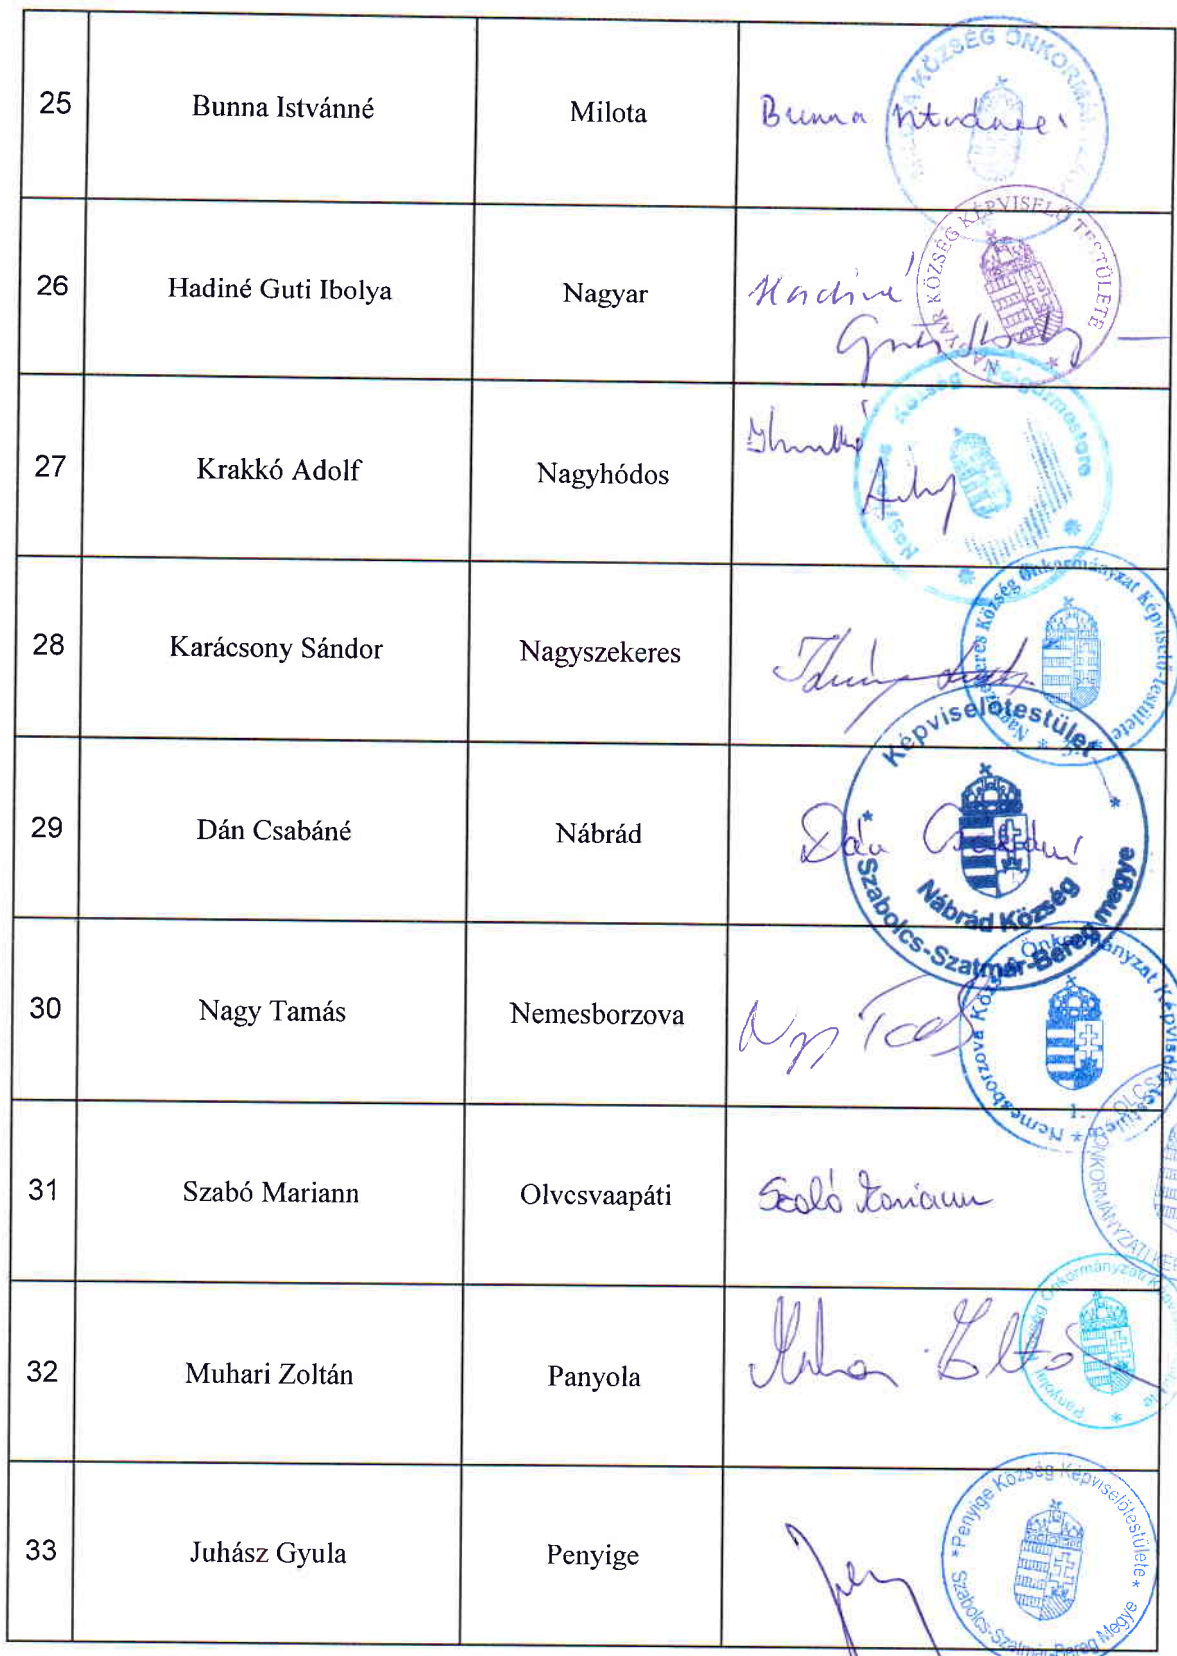 25 Bunna Istvánné Milota Bunna Istvánné
KÖZSÉG ÖNKORMÁNYZAT
26 Hadiné Guti Ibolya Nagyar Hadiné
Guti Ibolya
NAGYAR KÖZSÉG KÉPVISELŐ TESTÜLETE *
27 Krakkó Adolf Nagyhódos
Nagyhódos Község Polgármestere
28 Karácsony Sándor Nagyszekeres
Nagyszekeres Község Önkormányzat Képviselő-testülete *
29 Dán Csabáné Nábrád Dán Csabáné
Képviselőtestület
Nábrád Község
* Szabolcs-Szatmár-Bereg megye *
30 Nagy Tamás Nemesborzova Nagy Tamás
* Nemesborzova Község Önkormányzat Képviselő-testülete
1.
31 Szabó Mariann Olvcsvaapáti Szabó Mariann
ÖNKORMÁNYZATI
32 Muhari Zoltán Panyola Muhari Zoltán
Önkormányzati
33 Juhász Gyula Penyige
* Penyige Község Képviselőtestülete *
Szabolcs-Szatmár-Bereg Megye